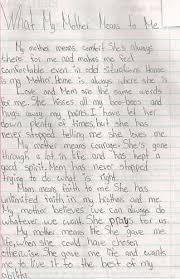 What My Mother Means To Me
My mother means comfort. She's always
there for me and makes me feel
comfortable even in odd situations. Home
is my Mother. Home is always where she is
Love and Mom are the same words
for me. She kisses all my boo-boos and
hugs away my pains. I have let her
down plenty of times, but she has
never stopped telling me she loves me.
My mother means courage. She's gone
through a lot in life and has kept a
good spirit. Mom has never stopped
trying to do what is right.
Mom means faith to me. She has
unlimited faith in my brothers and me
My mother believes we can always do
whatever we want. She prays for us.
My mother means life. She gave me
life, when she could have chosen
otherwise. She gave me life and wants
me to live it to the best of my
ability.